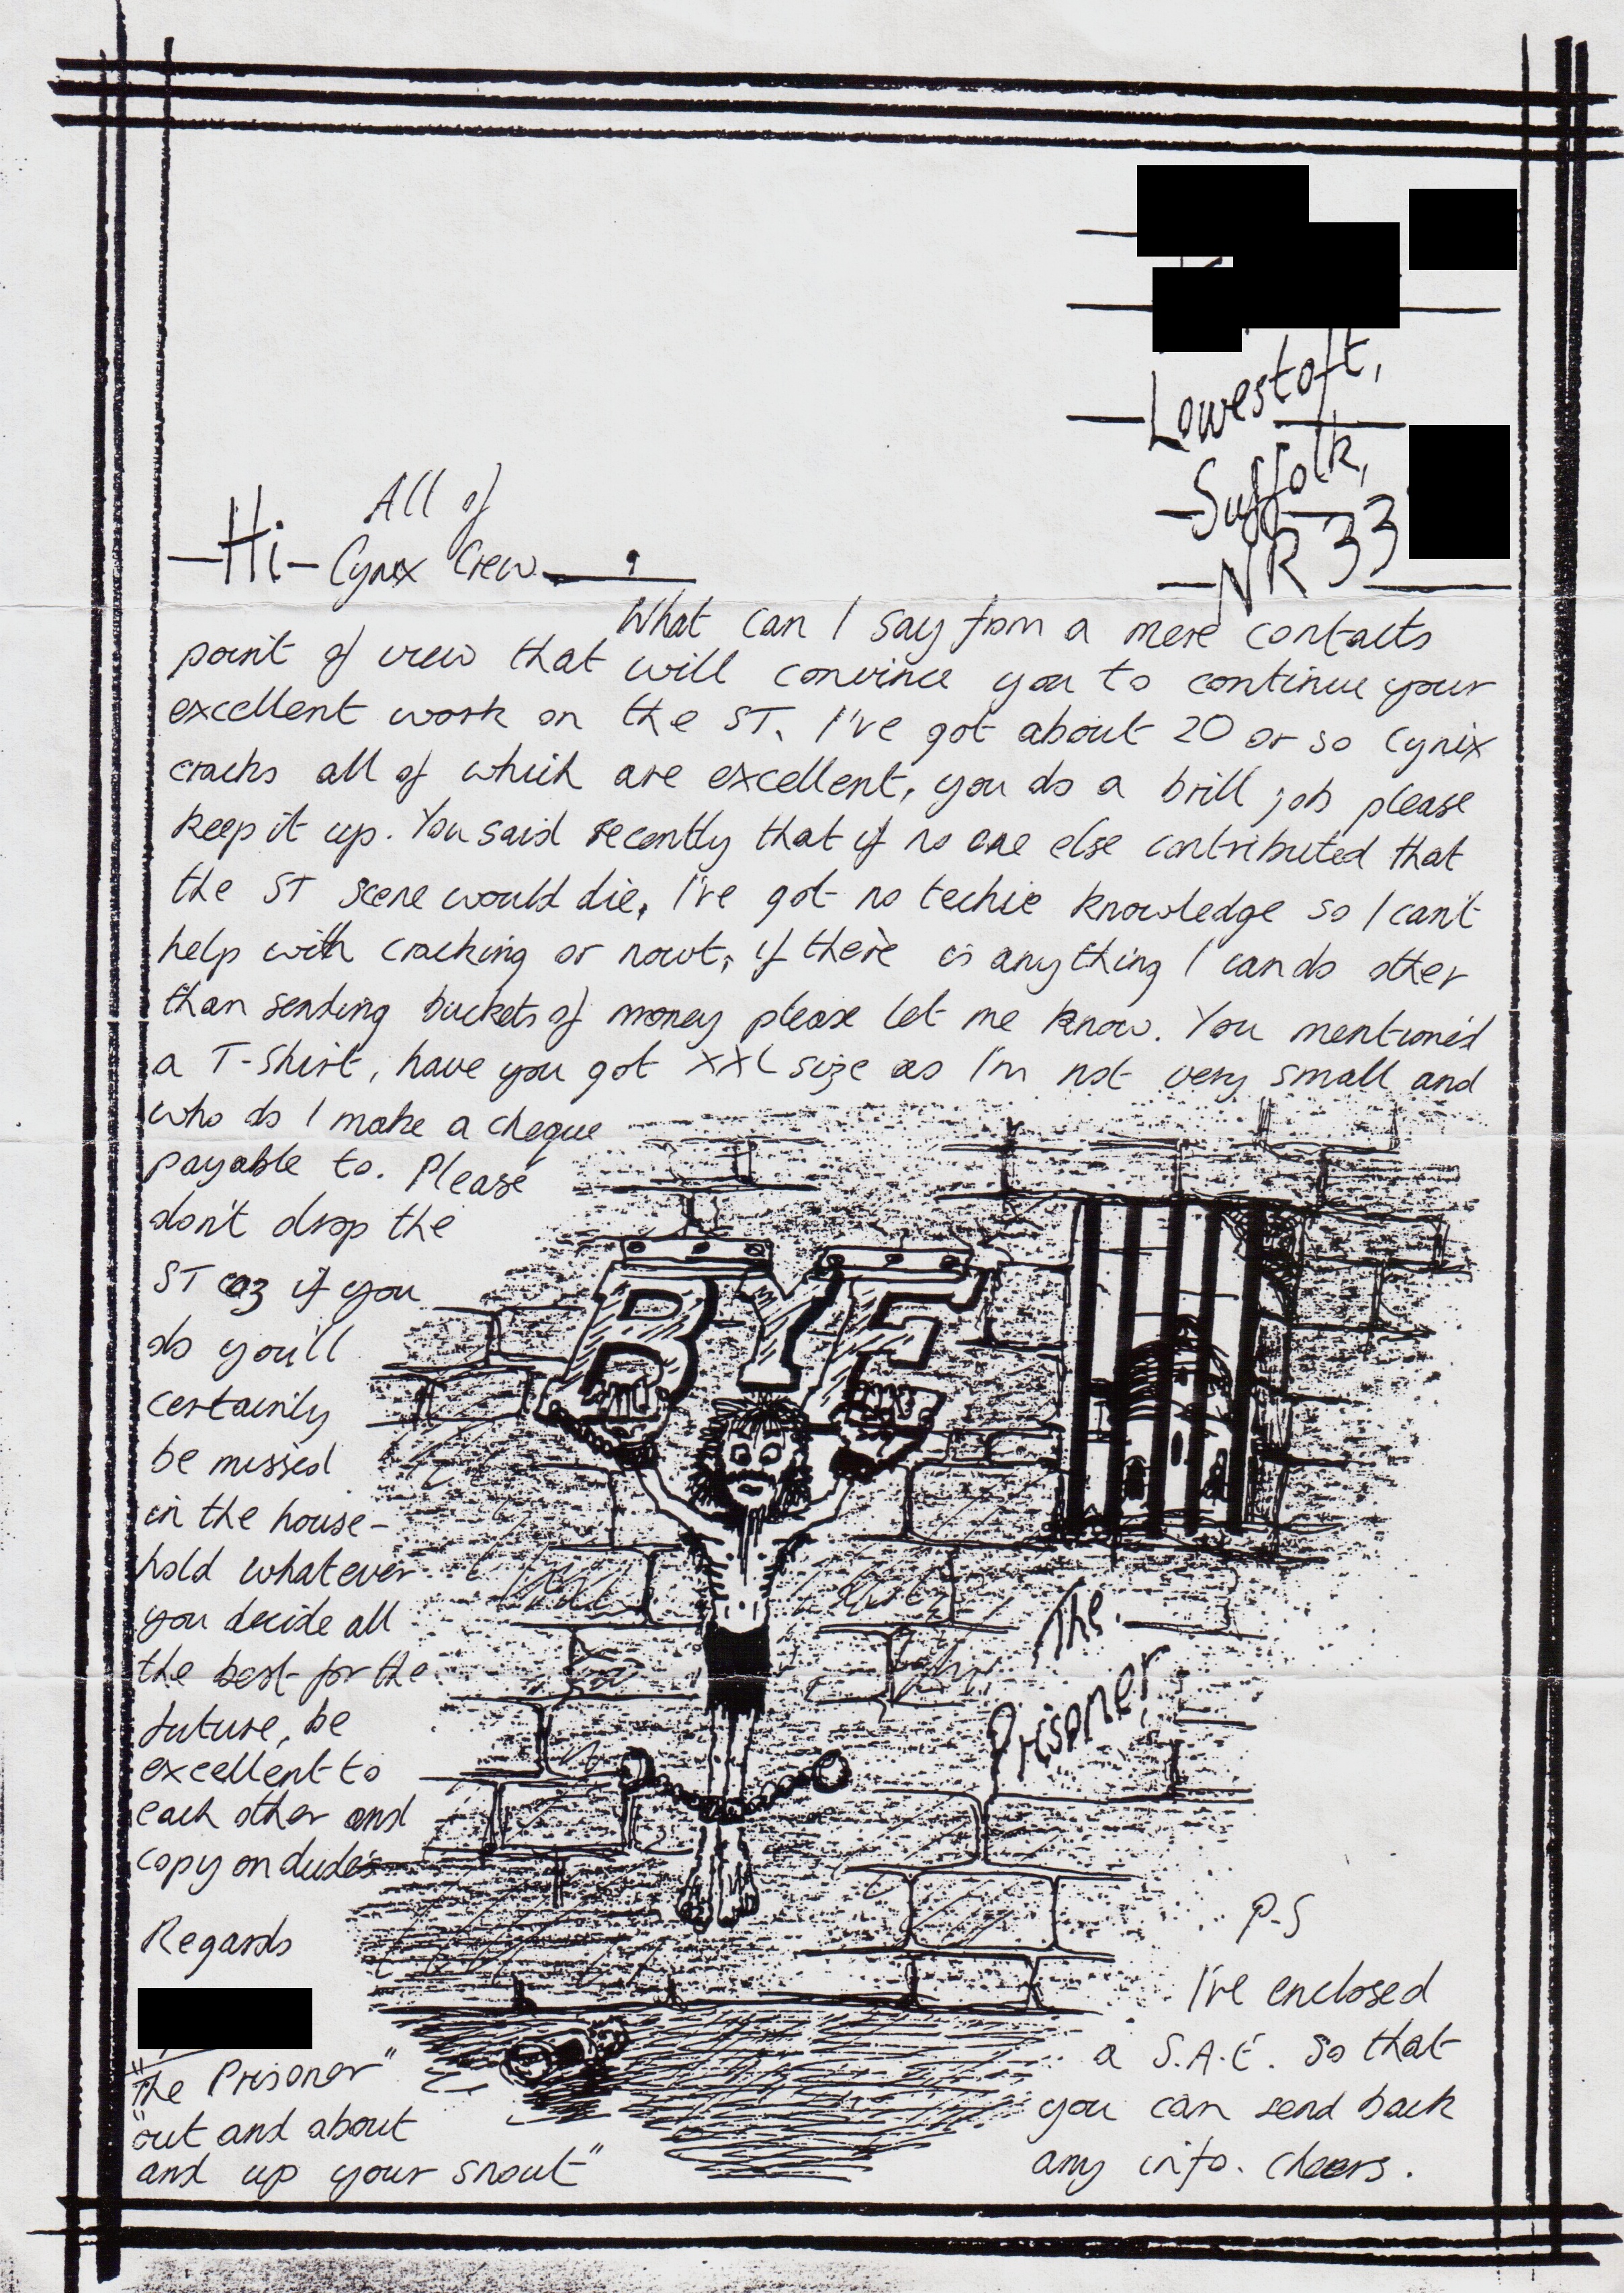 Lowestoft,
Suffolk,
NR33
Hi All of
Cynix Crew
What can I say from a mere contacts
point of view that will convince you to continue your
excellent work on the ST. I've got about 20 or so Cynix
cracks all of which are excellent, you do a brill job please
keep it up. You said recently that if no one else contributed that
the ST scene would die, I've got no techie knowledge so I can't
help with cracking or nowt, if there is anything I can do other
than sending buckets of money please let me know. You mentioned
a T-Shirt, have you got XXL size as I'm not very small and
who do I make a cheque
payable to. Please
don't drop the
ST coz if you
do you'll
certainly
be missed
in the house-
hold whatever
you decide all
the best for the
future, be
excellent to
each other and
copy on dudes
Regards
"The Prisoner"
"out and about
and up your snout"
BYE
The
Prisoner
P-S
I've enclosed
a S.A.E. so that
you can send back
any info. cheers.